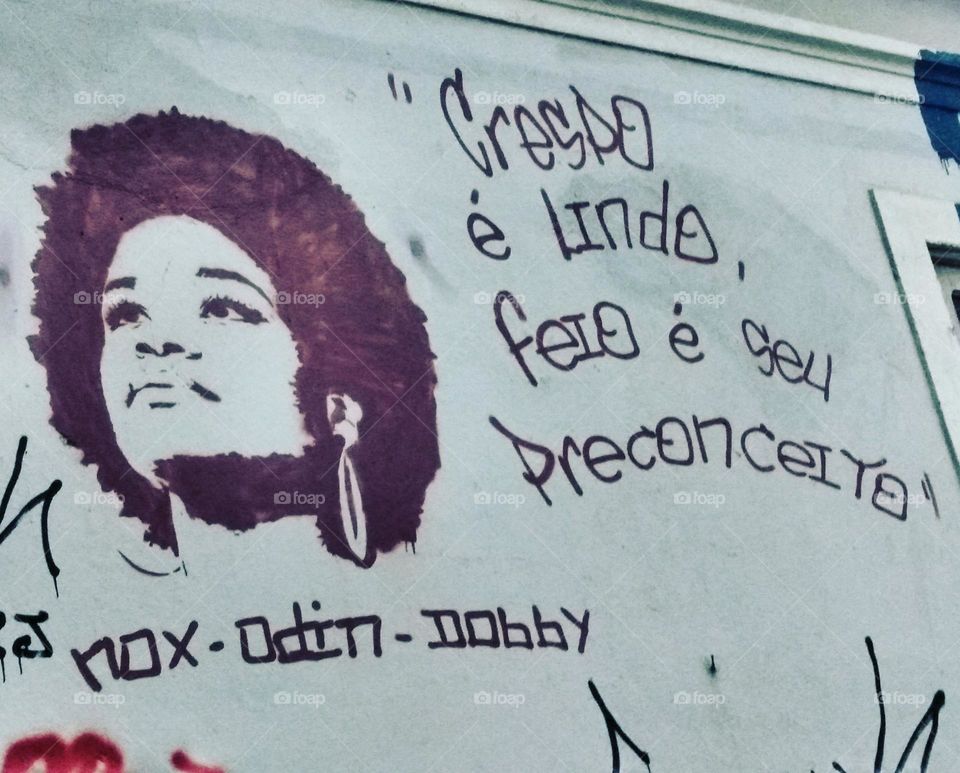 "Crespo
é lindo,
feio é seu
preconceito"
nox - Odin - Dobby